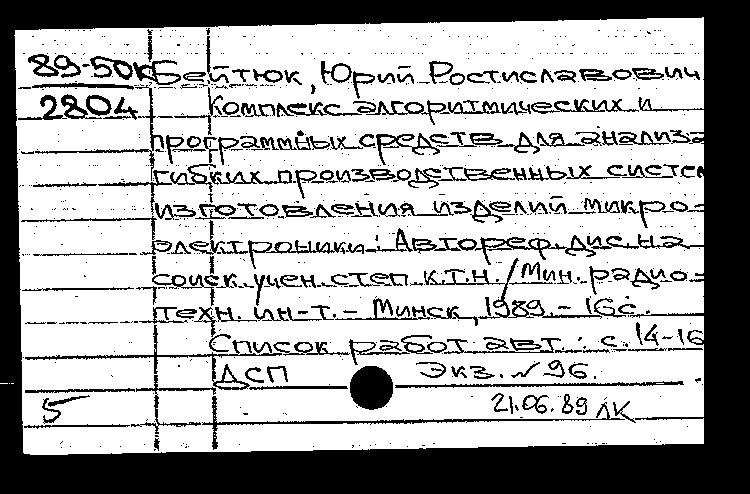 89-50к Бейтюк, Юрий Ростиславович
2804 Комплекс алгоритмических и
программных средств для анализа
гибких производственных систем
изготовления изделий микро-
электроники: Автореф. дис. на
соиск. учен. степ. к.т.н. / Мин. радио-
техн. ин-т. - Минск, 1989. - 16с.
Список работ авт.: с. 14-16
ДСП Экз. № 96.
5 21.06.89 ЛК